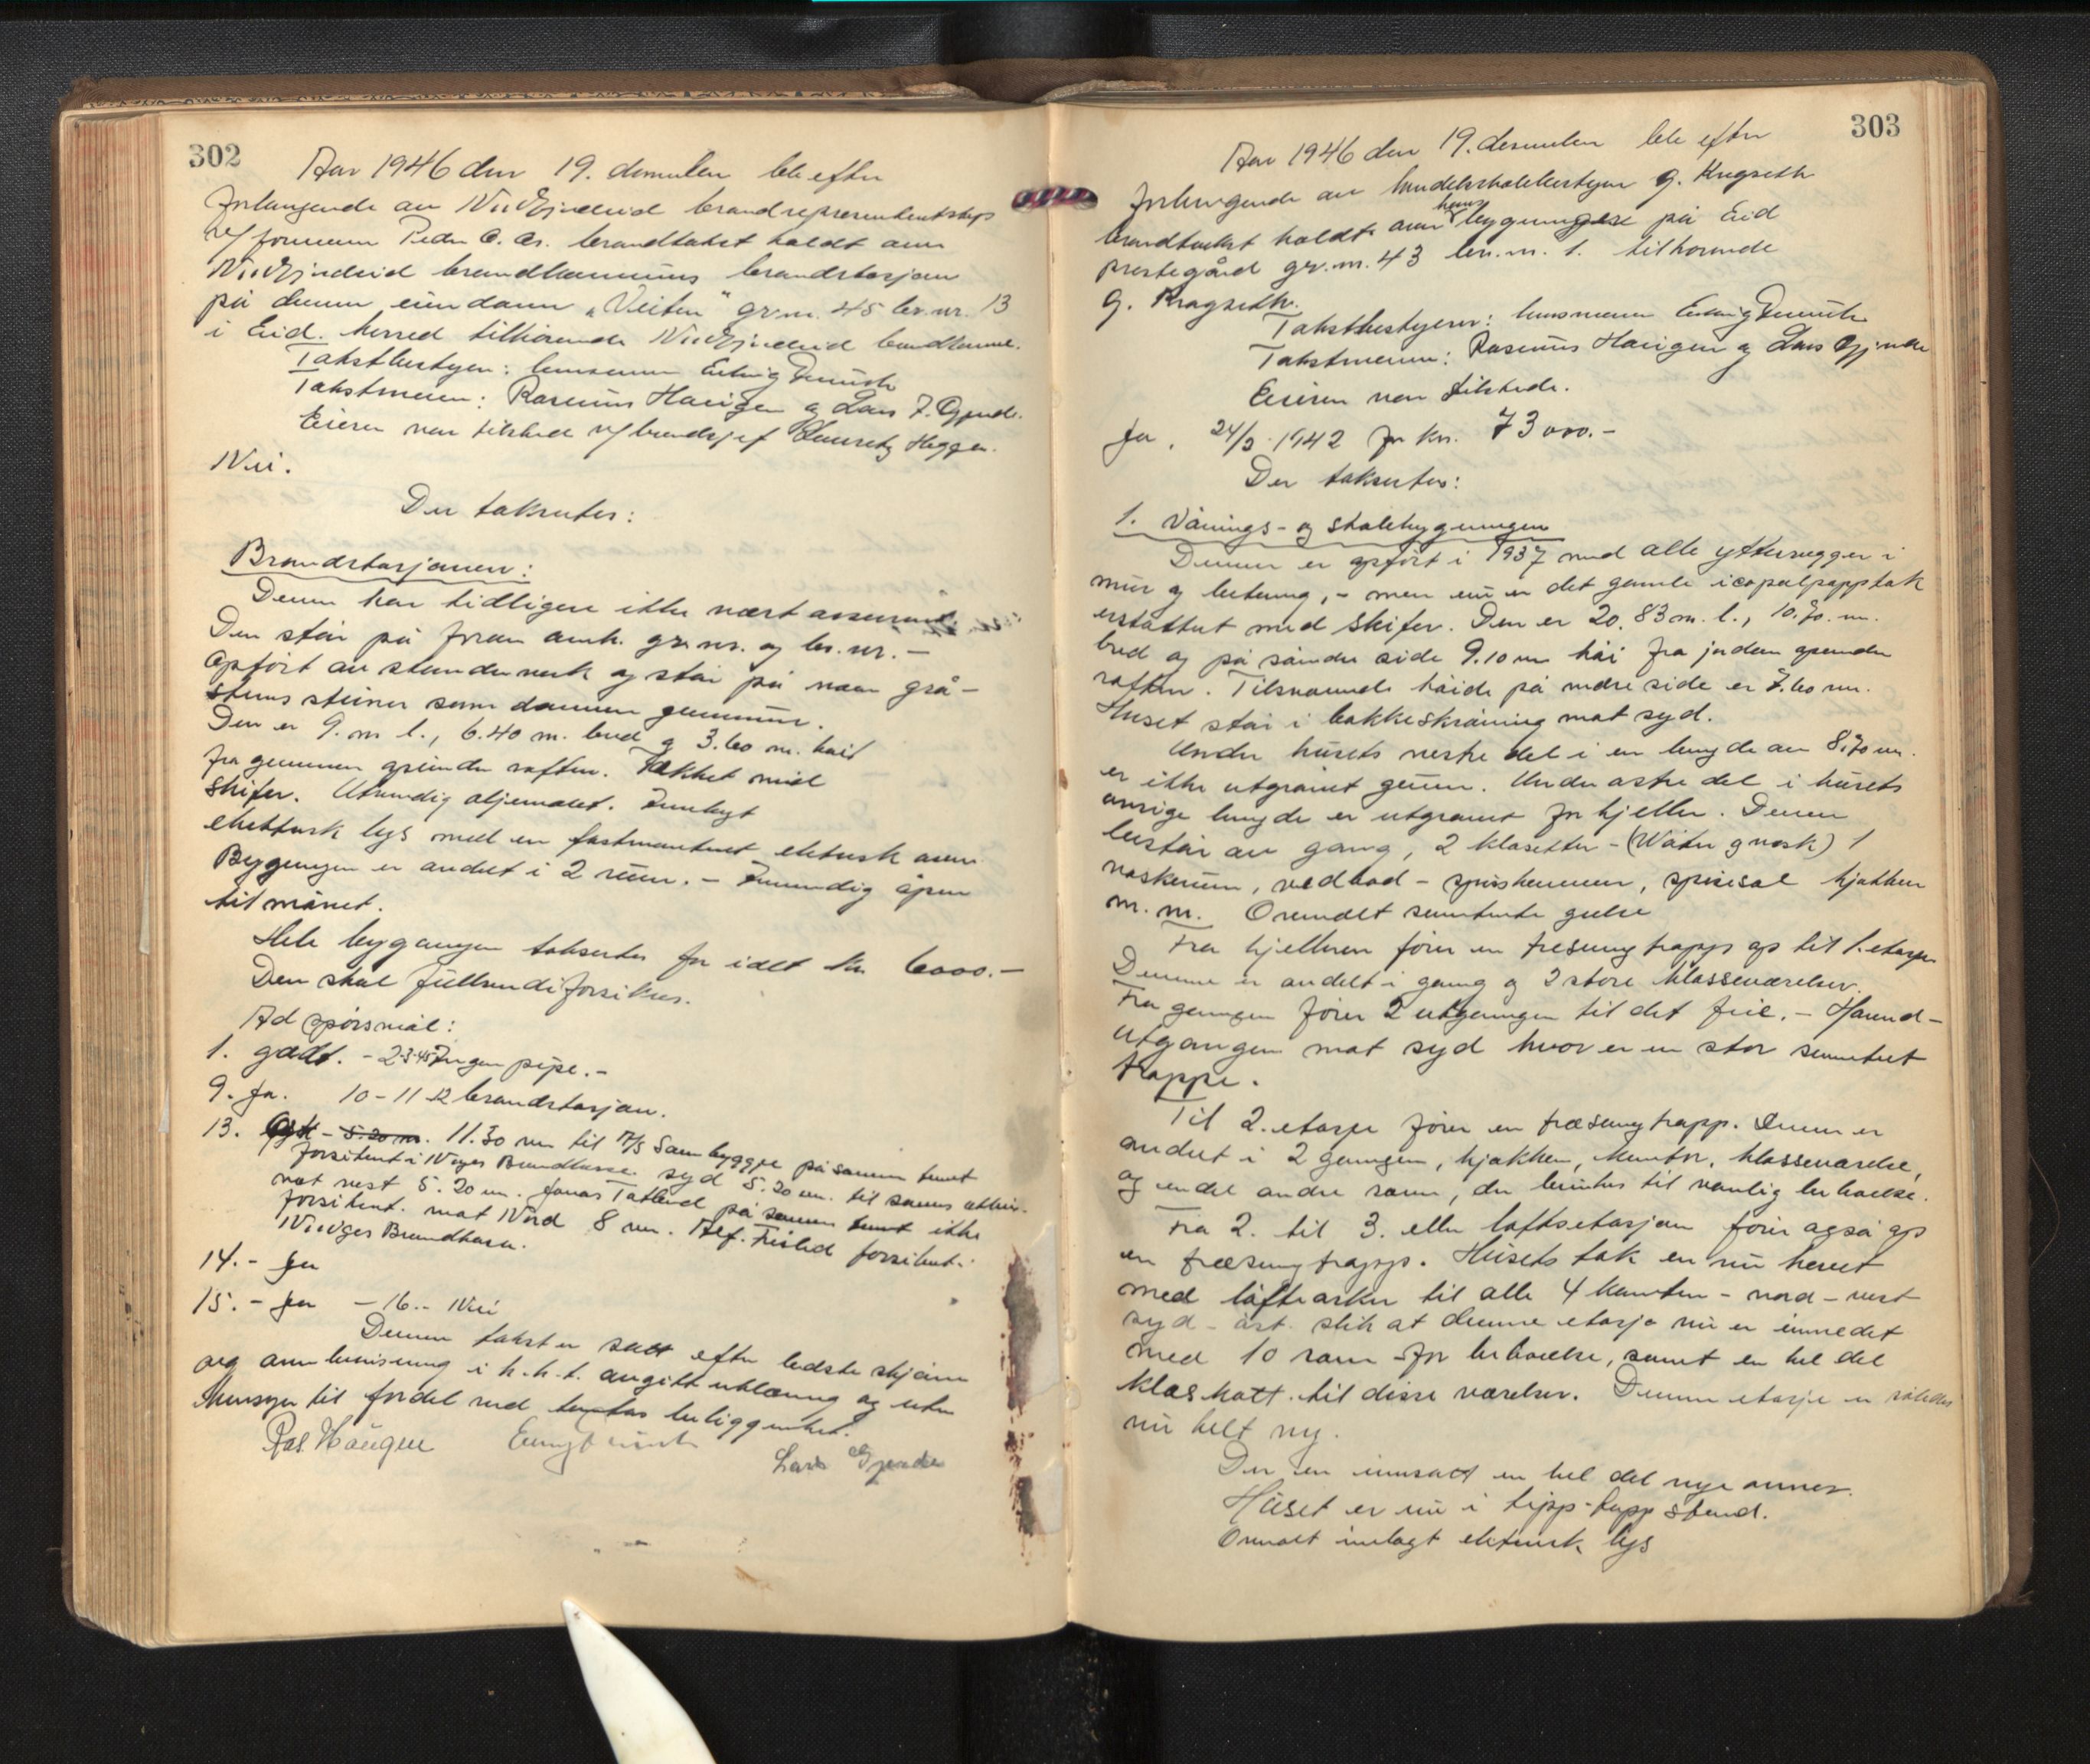 302
Aar 1946 den 19. desember ble efter
forlangende av Nordfjordeid brandrepresentantskap
v/ formann Peder C. Os. brandtakst holdt over
Nordfjordeid brandkommunes brandstasjon
på dennes eiendom "Veiten" gr.nr. 45 br.nr. 13
i Eid herred tilhørende Nordfjordeid brandkomm.
Takstbestyrer: lensmann
Takstmenn: Rasmus Haugen og Lars J. Gjerde.
Eieren var tilstede v/ brandsjef Lauritz Heggen.
Nei.
Der takseres:
Brandstasjonen:
Denne har tidligere ikke vært assurert.
Den står på foran anh. gr.nr. og br.nr. -
Opført av stenderverk og står på noen grå-
stens steiner som danner grunnmur.
Den er 9. m l., 6.40 m. bred og 3.60 m. høi
fra grunnen ovenunder raften. Tækket med
skifer. Utvendig oljemalet. Innlagt
elektrisk lys med en fastmontert elektrisk ovn.
Bygningen er andelt i 2 rum. - Innvendig åpen
til mønet.
Hele bygningen takseres for i alt kr. 6000.-
Den skal fullverdiforsikres.
Ad spørsmål:
1. godt. - 2-3-45 Ingen pipe. -
9. Ja. 10-11-12 brandstasjon.
13. Øst - 5.20 m. 11.30 m til A/S Sambygge på samme tomt
forsikret i Norges Brandkasse. syd 5.20 m. til samme
mot vest 5.20 m. Jonas Totland på samme tomt ikke
forsikret. mot Nord 8 m. Alf. forsikret i
Norges Brandkasse.
14. - Ja
15. - Ja - 16.- Nei
Denne takst er satt efter bedste skjønn
og overbevisning i h.h.t. avgitt erklæring og uten
hensyn til fordel ved beliggenhet.
Ras. Haugen
Lars Gjerde
303
Aar 1946 den 19. desember ble efter
forlangende av handelsskolebestyrer G. Kragseth
brandtakst holdt over hans bygninger på Eid
prestegård gr.nr. 43 br.nr. 1. tilhørende
G. Kragseth.
Takstbestyrer: lensmann
Takstmenn: Rasmus Haugen og Lars Gjerde
Eieren var tilstede.
Ja. 24/3 1942 for kr. 73000.-
Der takseres:
1. Vånings- og skolebygningen
Denne er opført i 1937 med alle yttervegger i
mur og betong, - men nu er det gamle icopalpapptak
erstattet med skifer. Den er 20.83 m. l., 10.70. m.
bred og på søndre side 9.10 m høi fra jorden ovenunder
raften. Tilsvarende høide på nordre side er 7.60 m.
Huset står i bakkeskråning mot syd.
Under husets vestre del i en lengde av 8.70 m.
er ikke utgravet grunn. Under østre del i husets
øvrige lengde er utgravet for kjeller. Denne
består av gang, 2 klosetter - (Water og vask) 1
vaskerum, vedbod - spiskammer, spisesal kjøkken
m.m. Overalt sementerte gulve
Fra kjelleren fører en tresving trapp op til 1. etasje
Denne er andelt i gang og 2 store klasseværelser.
Fra gangen fører 2 utganger til det frie. - Hoved-
utgangen mot syd hvor er en stor sementert
trappe.
Til 2. etasje fører en træsving trapp. Denne er
andelt i 2 ganger, kjøkken, kontor, klasseværelse,
og endel andre rom, der benyttes til vanlig beboelse.
Fra 2. til 3. eller loftsetasjen fører også op
en træsving trapp. Husets tak er nu hevet
med loftsarker til alle 4 kanter - nord - vest
syd - øst. slik at denne etasje nu er innredet
med 10 rom for beboelse, samt en hel del
klæskott til disse værelser. Denne etasje er således
nu helt ny.
Der er innsatt en hel del nye ovner.
Huset er nu i tipp-topp stand.
Overalt innlagt elektrisk lys